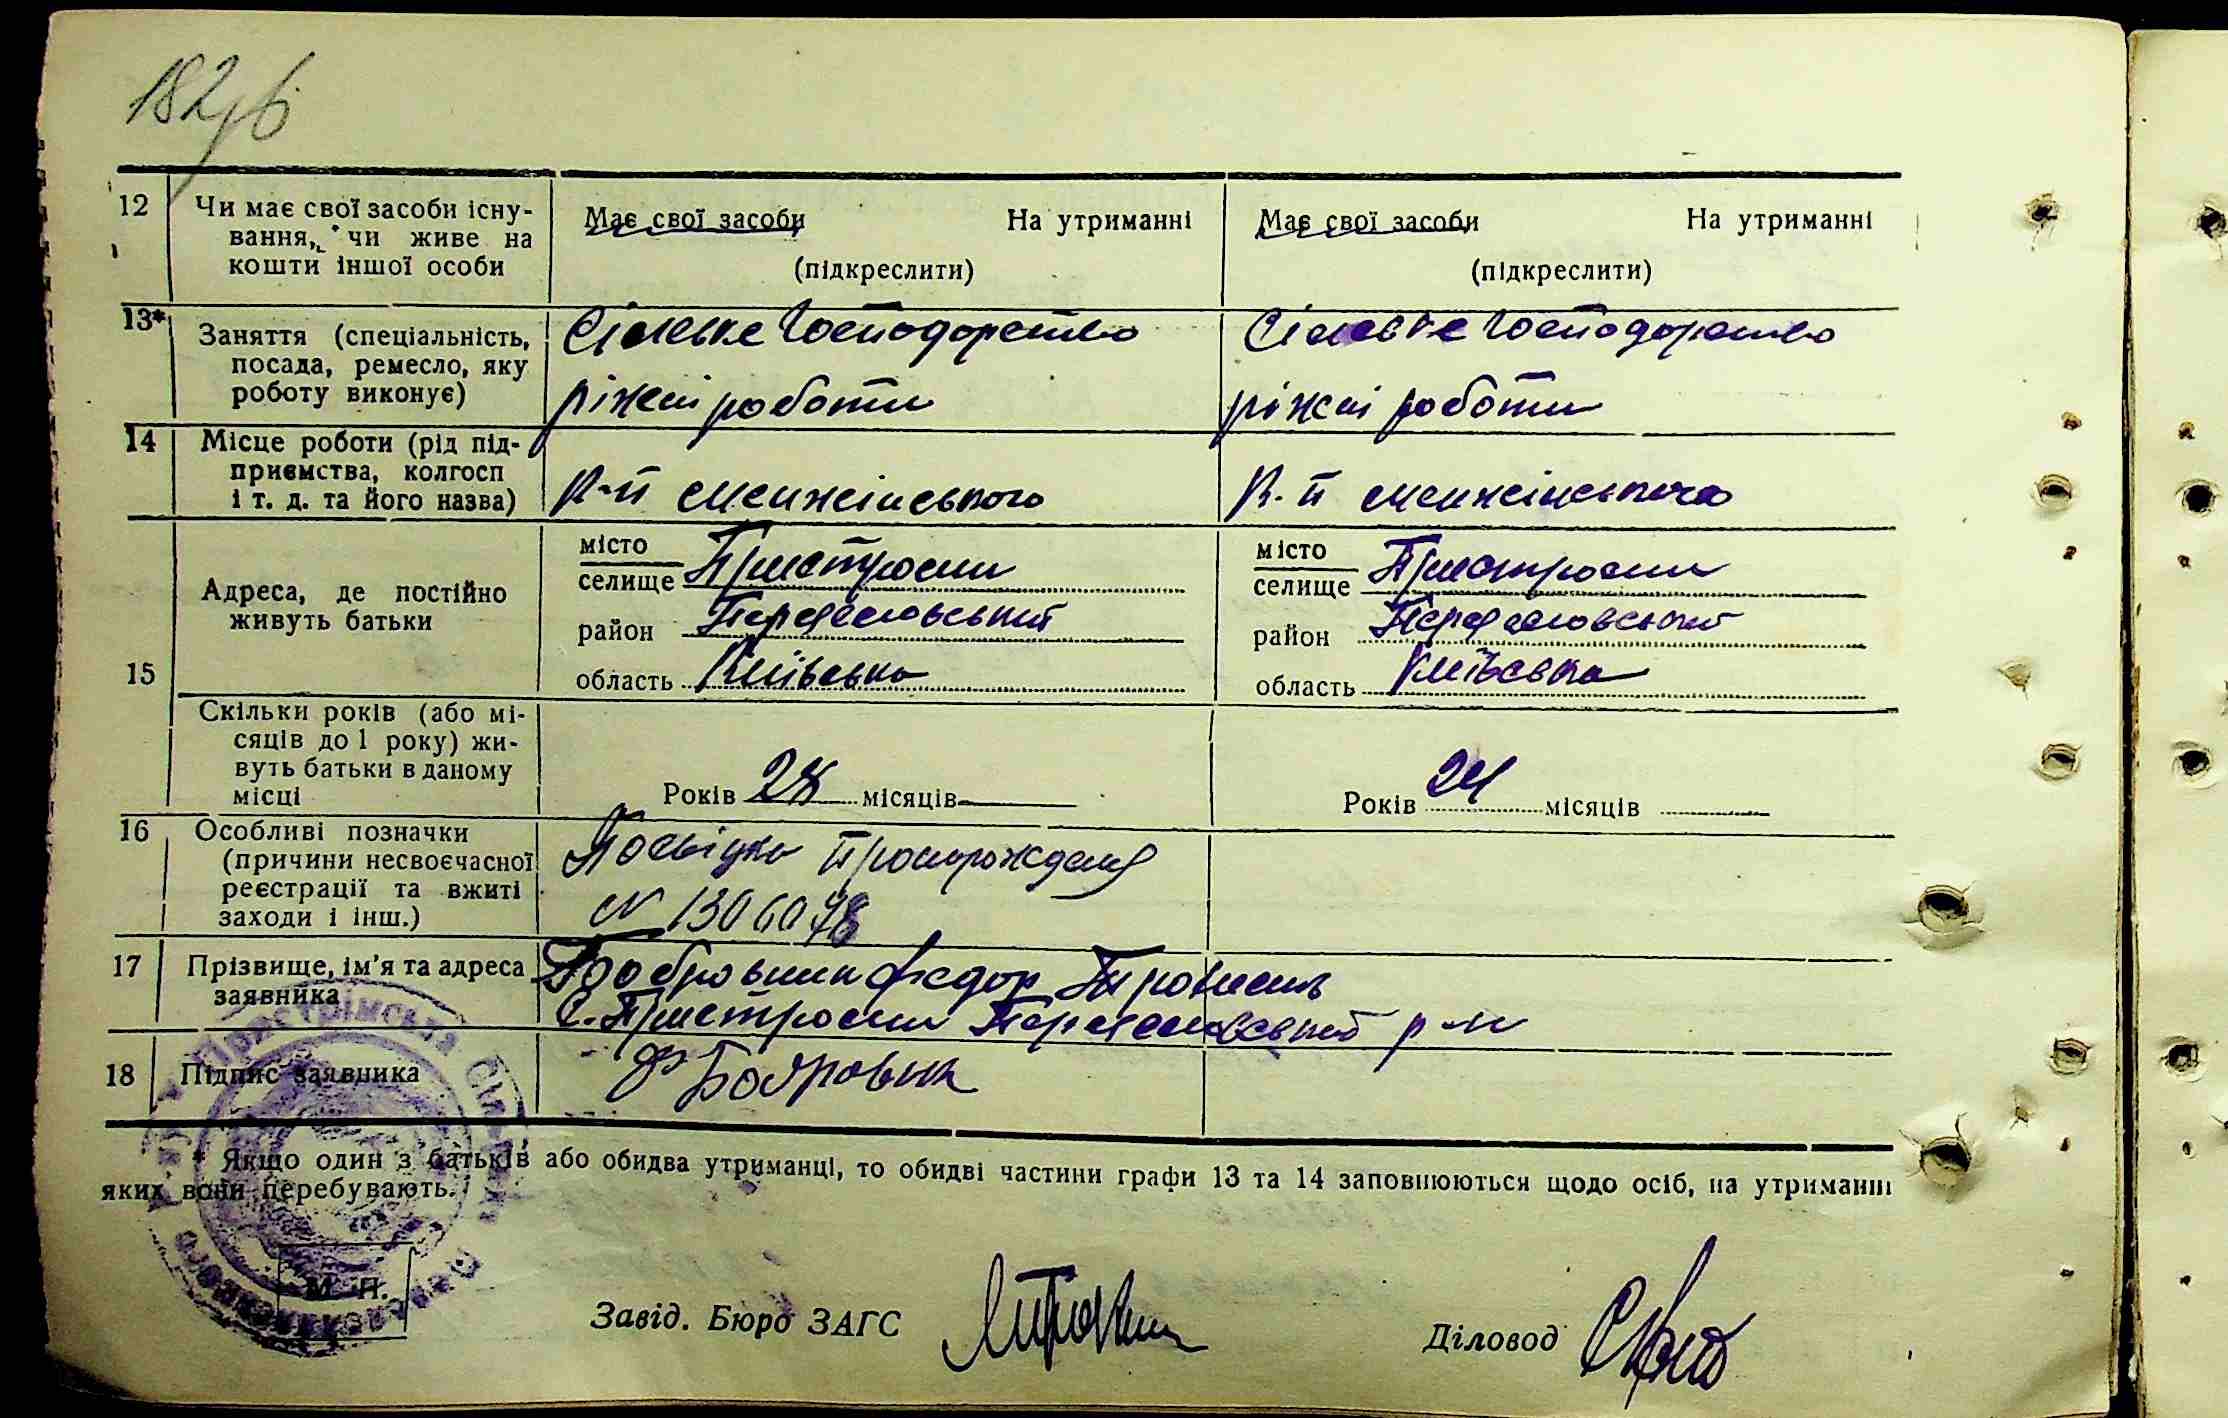 182
12 Чи має свої засоби існу- Має свої засоби На утриманні Має свої засоби На утриманні
вання, чи живе на
кошти іншої особи (підкреслити) (підкреслити)
13* Заняття (спеціальність, Сільське господарство Сільське господарство
посада, ремесло, яку
роботу виконує) ріжні роботи ріжні роботи
14 Місце роботи (рід під-
приємства, колгосп
і т. д. та його назва) к-п менжінського к-п менжінського
місто місто
селище Пристроми селище Пристроми
Адреса, де постійно
живуть батьки район Переяславський район Переяславський
15 область Київська область Київська
Скільки років (або мі-
сяців до 1 року) жи-
вуть батьки в даному
місці Років 28 місяців Років 24 місяців
16 Особливі позначки
(причини несвоєчасної
реєстрації та вжиті
заходи і інш.) №
17 Прізвище, ім'я та адреса Федор
заявника с. Пристроми Переяславський р-н
18 Підпис заявника Ф Бобровник
* Якщо один з батьків або обидва утриманці, то обидві частини графи 13 та 14 заповнюються щодо осіб, на утриманні
яких вони перебувають.
М. П.
Завід. Бюро ЗАГС Діловод